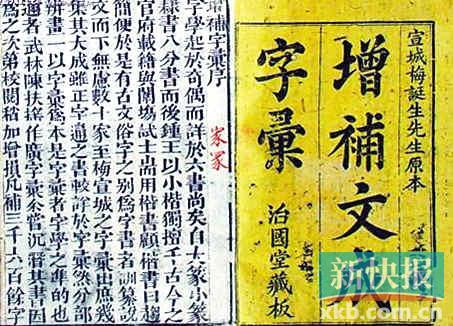 宣城梅誕生先生原本
增補文成
字彙
治國堂藏板
增補字彙序
字學起於奇偶而詳於六書尚矣自大篆小篆
隸書八分書而後鍾王以小楷獨擅千古今之
官府載籍與闈塲試士耑用楷書顧楷書日趨
簡便於是有古文俗字之別為字書者訓纂說
文而下無慮數十家至梅宣城之字彙出庶幾
集其大成雖正字通之書較詳於字彙然分部
辨畫一以字彙為本是字彙者字學之準的也
適者武林陳扶搖作廣字彙余嘗沉酣其書因
為之次弟校閱稍加增損凡補三千六百餘字
新快报
xkb.com.cn